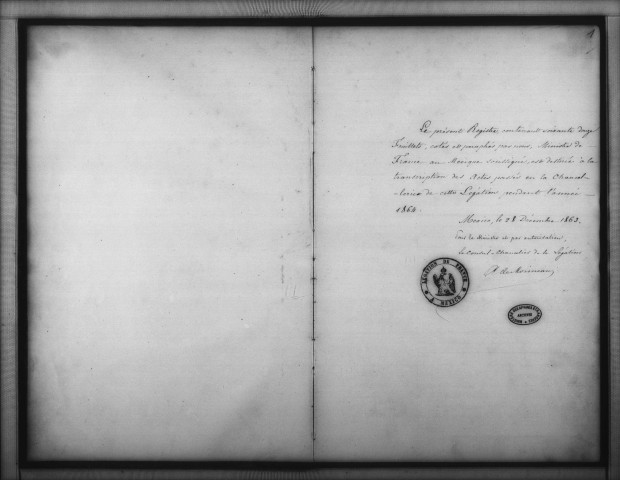 1
Le présent Registre contenant soixante douze
Feuillets, cotés et paraphés par nous, Ministre de
France au Mexique soussigné, est destiné à la
transcription des Actes passés en la Chancel-
-lerie de cette Légation pendant l'année
1864.
Mexico, le 28 Décembre 1863.
Pour le Ministre et par autorisation,
Le Consul Chancelier de la Légation
LÉGATION DE FRANCE
A MEXICO
ARCHIVES